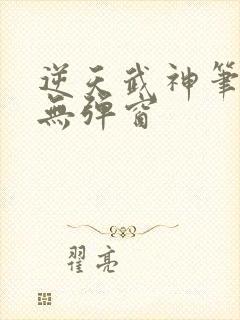 逆天武神筆
無彈窗
翟亮